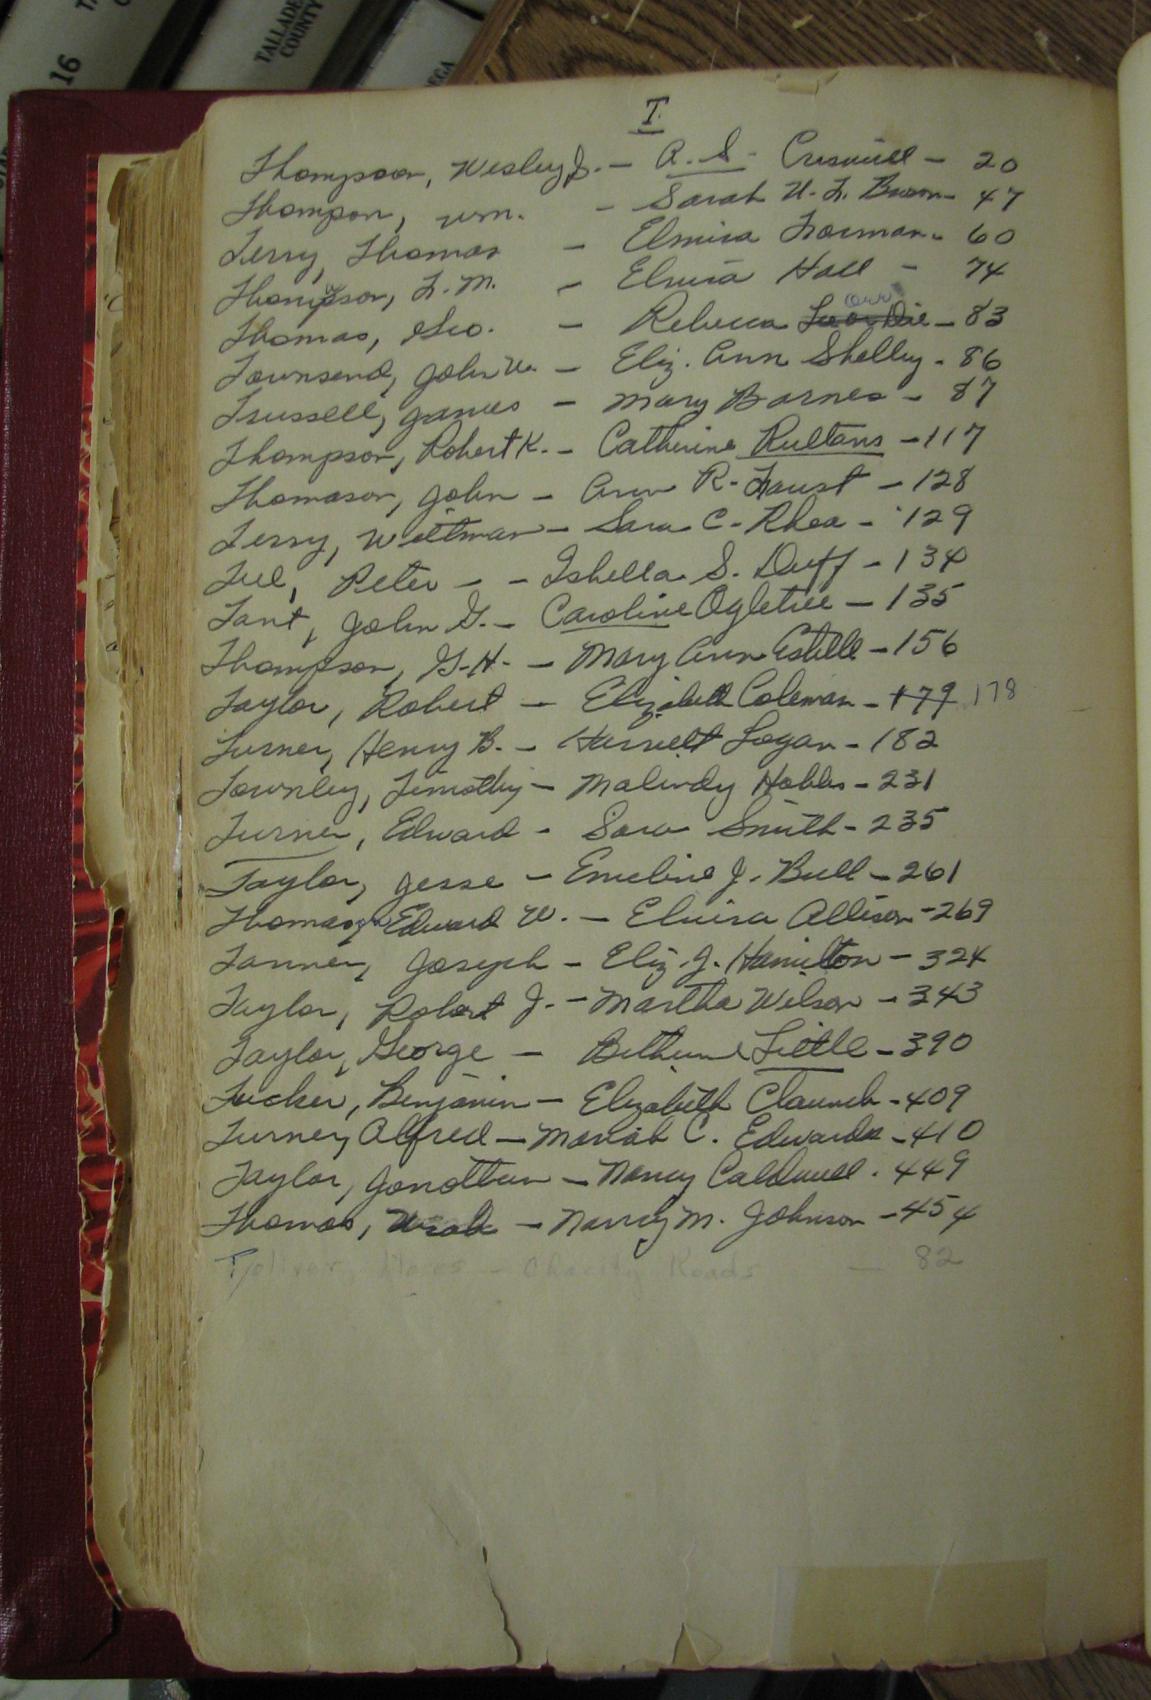 16
TALLADE
COUNTY
EGA
T
Thompson, Wesley J. - A. S. Criswell - 20
Thompson, Wm. - Sarah U. F. Brown - 47
Terry, Thomas - Elmira Forman - 60
Thompson, F. M. - Elmira Hall - 74
Thomas, Geo. - Rebecca Orr - 83
Townsend, John W. - Eliz. Ann Shelley - 86
Trussell, James - Mary Barnes - 87
Thompson, Robert K. - Catherine Rultans - 117
Thomason, John - Ann R. Faust - 128
Terry, Wittman - Sara C. Rhea - 129
Tul, Peter - - Isbella S. Duff - 134
Tant, John G. - Caroline Ogletree - 135
Thompson, G. H. - Mary Ann Estelle - 156
Taylor, Robert - Elizabeth Coleman - 179 178
Turner, Henry B. - Harriett Logan - 182
Townley, Timothy - Malindy Hobbs - 231
Turner, Edward - Sara Smith - 235
Taylor, Jesse - Emeline J. Bull - 261
Thomas, Edward W. - Elvira Allison - 269
Tanner, Joseph - Eliz. J. Hamilton - 324
Taylor, Robert J. - Martha Wilson - 343
Taylor, George - Bethune Little - 390
Tucker, Benjamin - Elizabeth Claunch - 409
Turner, Alfred - Mariah C. Edwards - 410
Taylor, Jonathan - Nancy Caldwell - 449
Thomas, - Nancy M. Johnson - 454
Toliver, - Charity Roads - 82